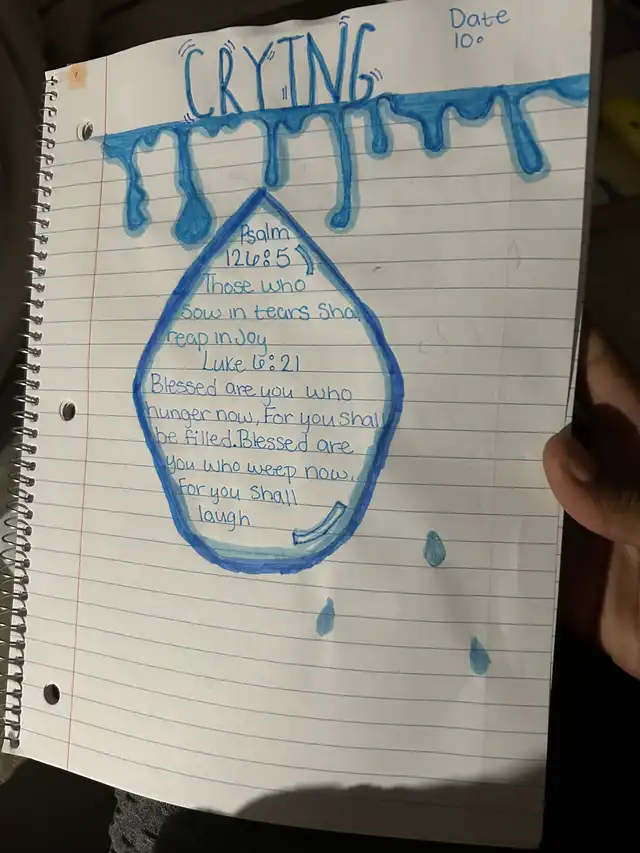 CRYING
Date
10:
Psalm
126:5
Those who
sow in tears Shal
reap in Joy
Luke 6:21
Blessed are you who
hunger now, For you shall
be filled. Blessed are
you who weep now,
For you shall
laugh